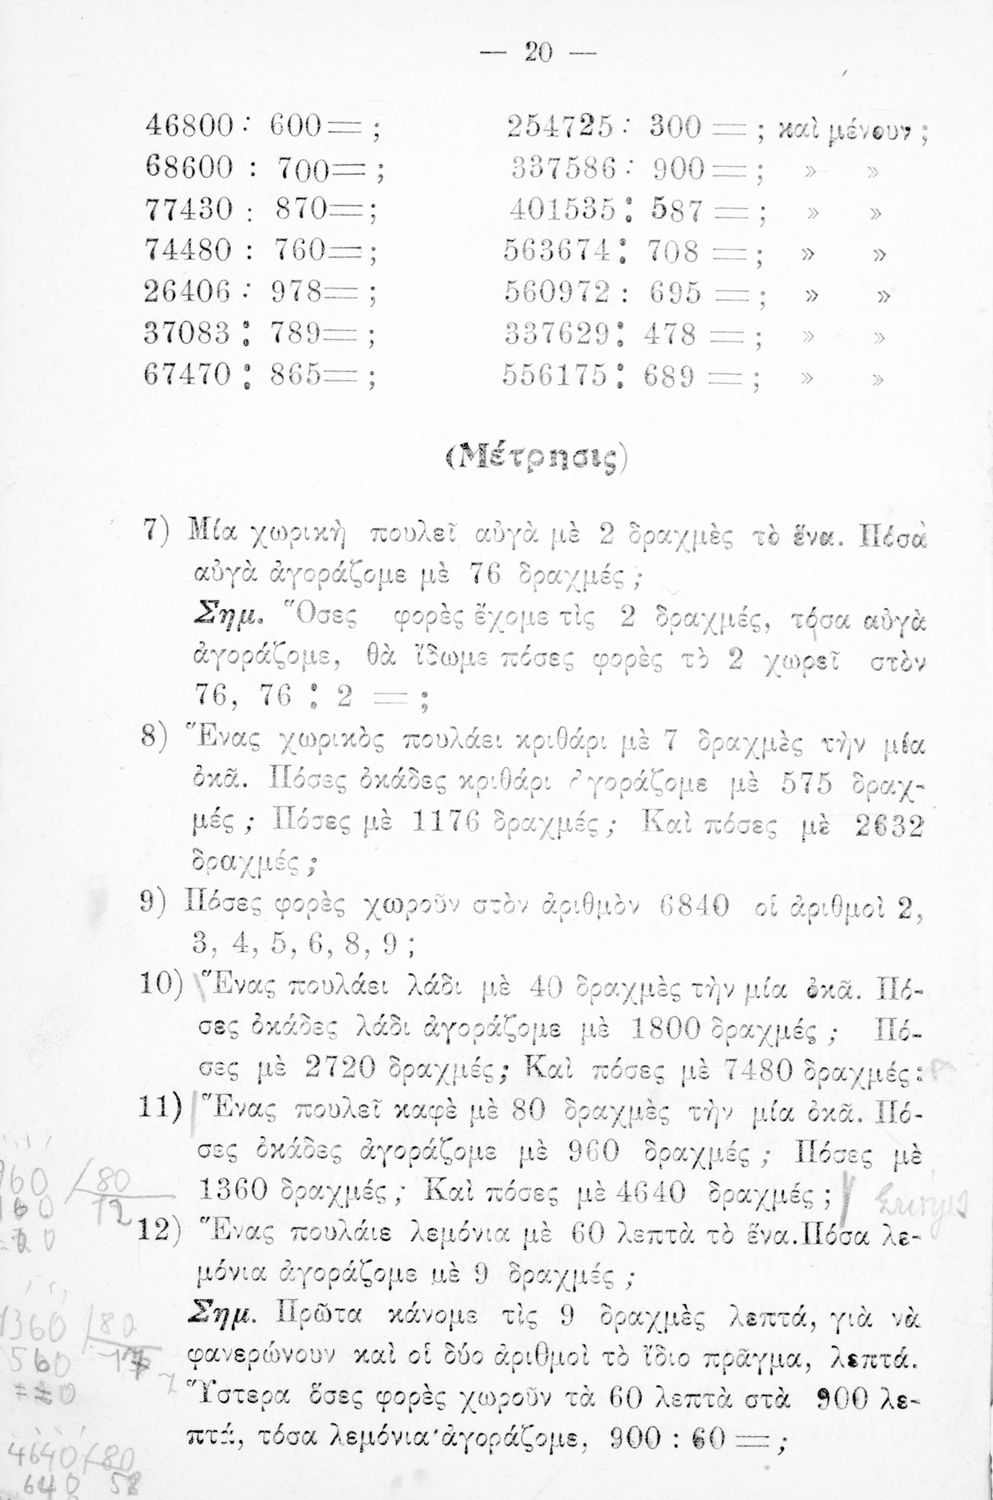 — 20 —
46800 : 600 = ; 254725 : 300 = ; καὶ μένουν ;
68600 : 700 = ; 337586 : 900 = ; » »
77430 : 870 = ; 401535 : 587 = ; » »
74480 : 760 = ; 563674 : 708 = ; » »
26406 : 978 = ; 560972 : 695 = ; » »
37083 : 789 = ; 337629 : 478 = ; » »
67470 : 865 = ; 556175 : 689 = ; » »
(Μέτρησις)
7) Μία χωρικὴ πουλεῖ αὐγὰ μὲ 2 δραχμὲς τὸ ἕνα. Πόσα
αὐγὰ ἀγοράζομε μὲ 76 δραχμές ;
Σημ. Ὅσες φορὲς ἔχομε τὶς 2 δραχμές, τόσα αὐγὰ
ἀγοράζομε, θὰ ἴδωμε πόσες φορὲς τὸ 2 χωρεῖ στὸν
76, 76 : 2 = ;
8) Ἕνας χωρικὸς πουλάει κριθάρι μὲ 7 δραχμὲς τὴν μία
ὀκᾶ. Πόσες ὀκάδες κριθάρι ἀγοράζομε μὲ 575 δραχ-
μές ; Πόσες μὲ 1176 δραχμές ; Καὶ πόσες μὲ 2632
δραχμές ;
9) Πόσες φορὲς χωροῦν στὸν ἀριθμὸν 6840 οἱ ἀριθμοὶ 2,
3, 4, 5, 6, 8, 9 ;
10) Ἕνας πουλάει λάδι μὲ 40 δραχμὲς τὴν μία ὀκᾶ. Πό-
σες ὀκάδες λάδι ἀγοράζομε μὲ 1800 δραχμές ; Πό-
σες μὲ 2720 δραχμές; Καὶ πόσες μὲ 7480 δραχμές:
11) Ἕνας πουλεῖ καφὲ μὲ 80 δραχμὲς τὴν μία ὀκᾶ. Πό-
σες ὀκάδες ἀγοράζομε μὲ 960 δραχμές ; Πόσες μὲ
1360 δραχμές ; Καὶ πόσες μὲ 4640 δραχμές ;
12) Ἕνας πουλάιε λεμόνια μὲ 60 λεπτὰ τὸ ἕνα. Πόσα λε-
μόνια ἀγοράζομε μὲ 9 δραχμές ;
Σημ. Πρῶτα κάνομε τὶς 9 δραχμὲς λεπτά, γιὰ νὰ
φανερώνουν καὶ οἱ δύο ἀριθμοὶ τὸ ἴδιο πρᾶγμα, λεπτά.
Ὕστερα ὅσες φορὲς χωροῦν τὰ 60 λεπτὰ στὰ 900 λε-
πτά, τόσα λεμόνια ἀγοράζομε, 900 : 60 = ;
960 80
160 12
1360 80
560
4640 80
640 58